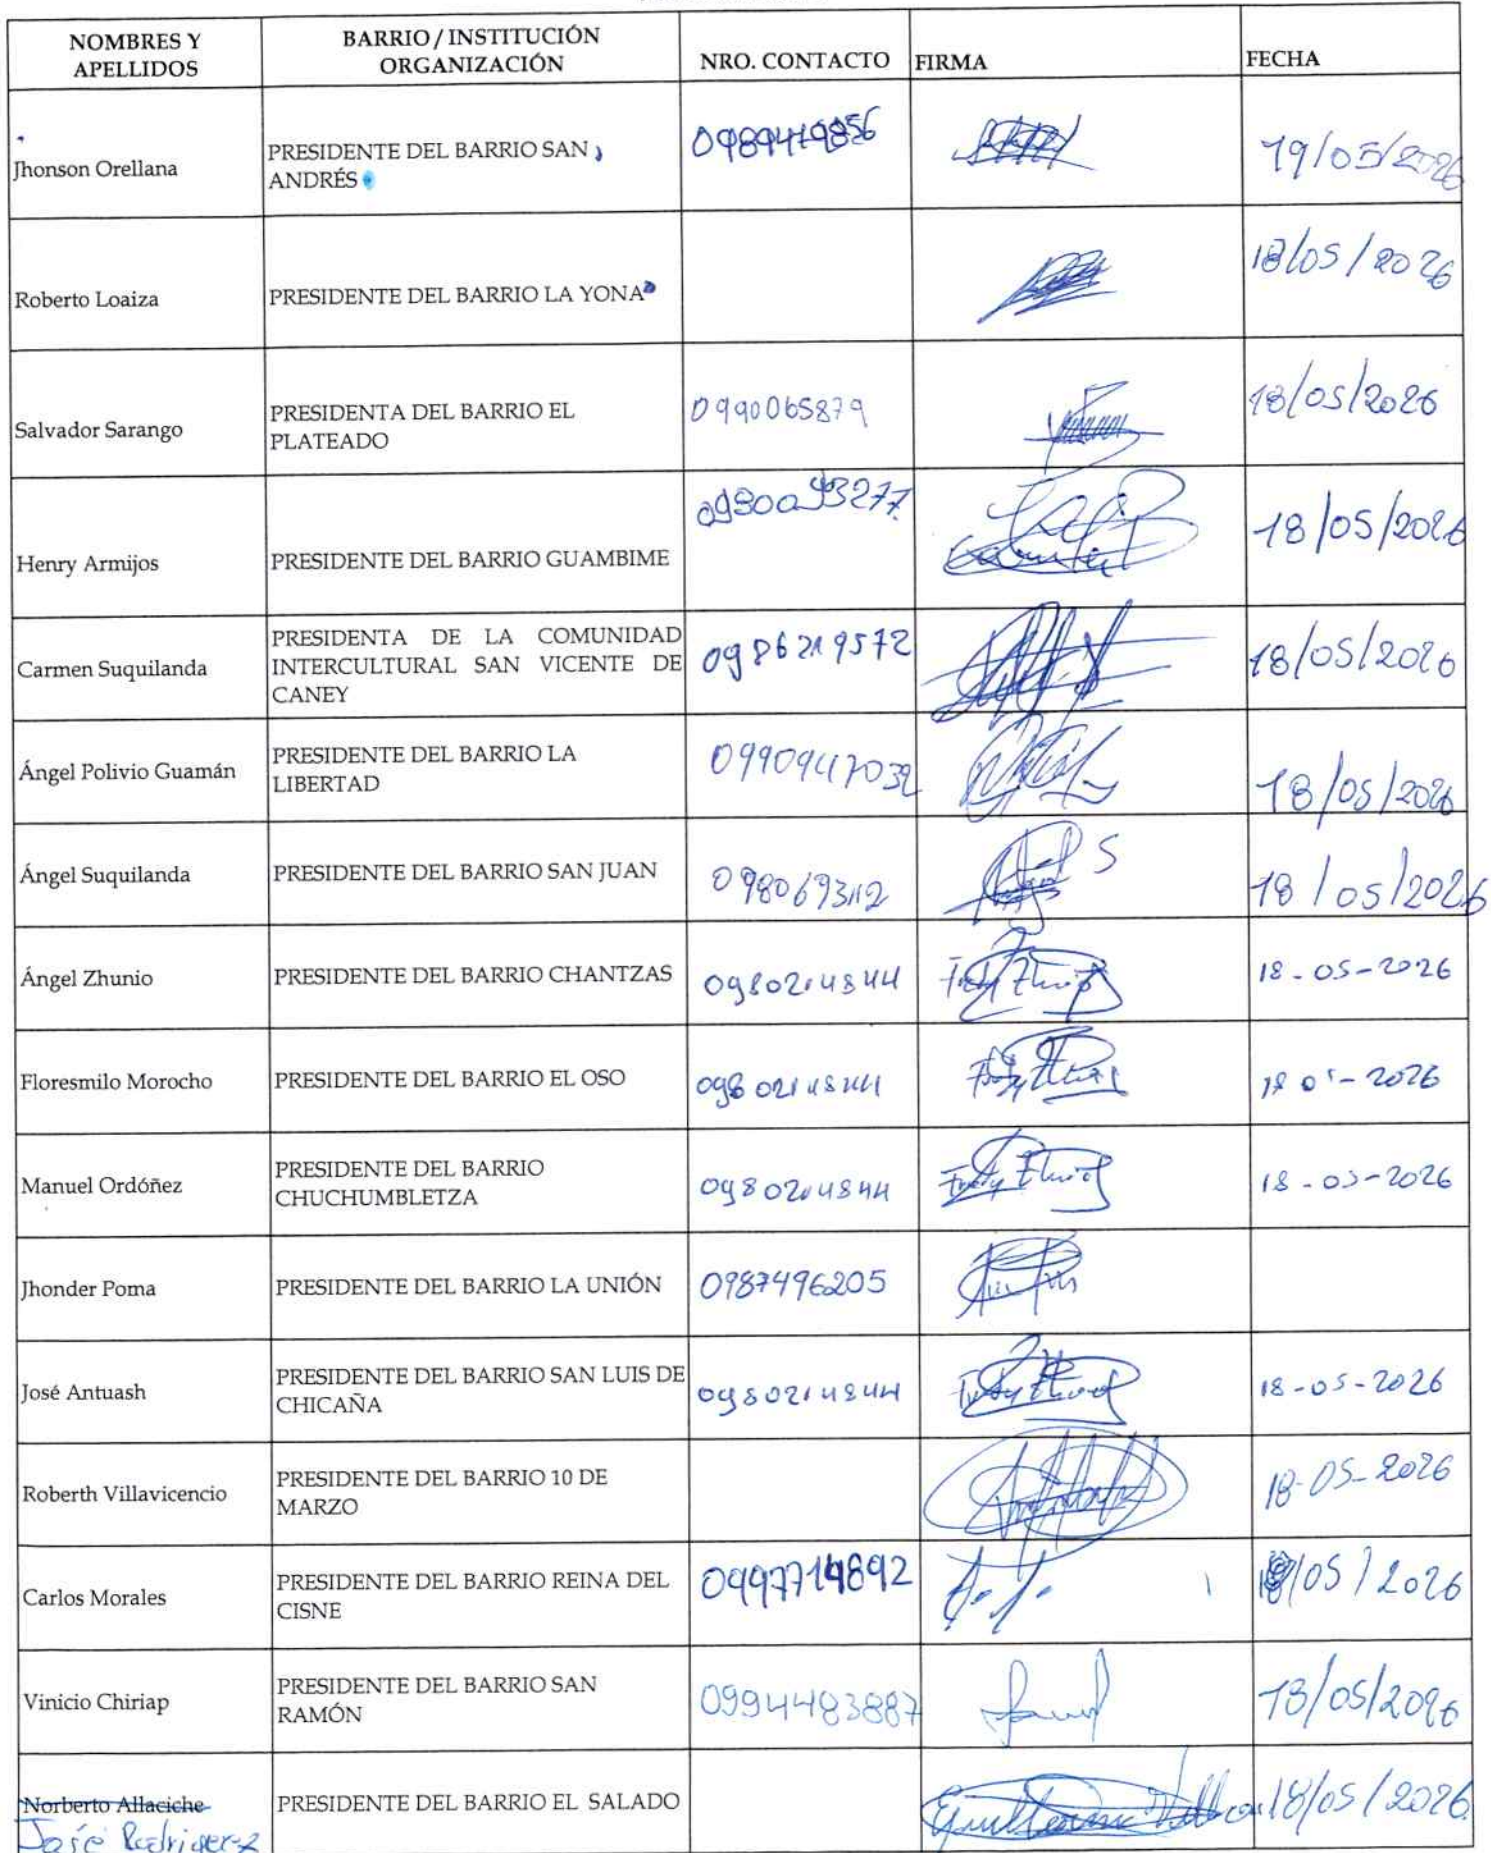 NOMBRES Y
APELLIDOS
BARRIO / INSTITUCIÓN
ORGANIZACIÓN
NRO. CONTACTO
FIRMA
FECHA
Jhonson Orellana
PRESIDENTE DEL BARRIO SAN
ANDRÉS
19/05/2026
Roberto Loaiza
PRESIDENTE DEL BARRIO LA YONA
18/05/2026
Salvador Sarango
PRESIDENTA DEL BARRIO EL
PLATEADO
0990065879
18/05/2026
Henry Armijos
PRESIDENTE DEL BARRIO GUAMBIME
18/05/2026
Carmen Suquilanda
PRESIDENTA DE LA COMUNIDAD
INTERCULTURAL SAN VICENTE DE
CANEY
0986219572
18/05/2026
Ángel Polivio Guamán
PRESIDENTE DEL BARRIO LA
LIBERTAD
0990947032
18/05/2026
Ángel Suquilanda
PRESIDENTE DEL BARRIO SAN JUAN
0980693112
18/05/2026
Ángel Zhunio
PRESIDENTE DEL BARRIO CHANTZAS
0980214844
Fredy Zhunio
18-05-2026
Floresmilo Morocho
PRESIDENTE DEL BARRIO EL OSO
0980214844
Fredy Zhunio
18 05-2026
Manuel Ordóñez
PRESIDENTE DEL BARRIO
CHUCHUMBLETZA
0980214844
Fredy Zhunio
18-05-2026
Jhonder Poma
PRESIDENTE DEL BARRIO LA UNIÓN
0987496205
José Antuash
PRESIDENTE DEL BARRIO SAN LUIS DE
CHICAÑA
0980214844
Fredy Zhunio
18-05-2026
Roberth Villavicencio
PRESIDENTE DEL BARRIO 10 DE
MARZO
18-05-2026
Carlos Morales
PRESIDENTE DEL BARRIO REINA DEL
CISNE
0997714892
18/05/2026
Vinicio Chiriap
PRESIDENTE DEL BARRIO SAN
RAMÓN
0994483887
18/05/2026
Norberto Allaciche
José Rodriguez
PRESIDENTE DEL BARRIO EL SALADO
18/05/2026